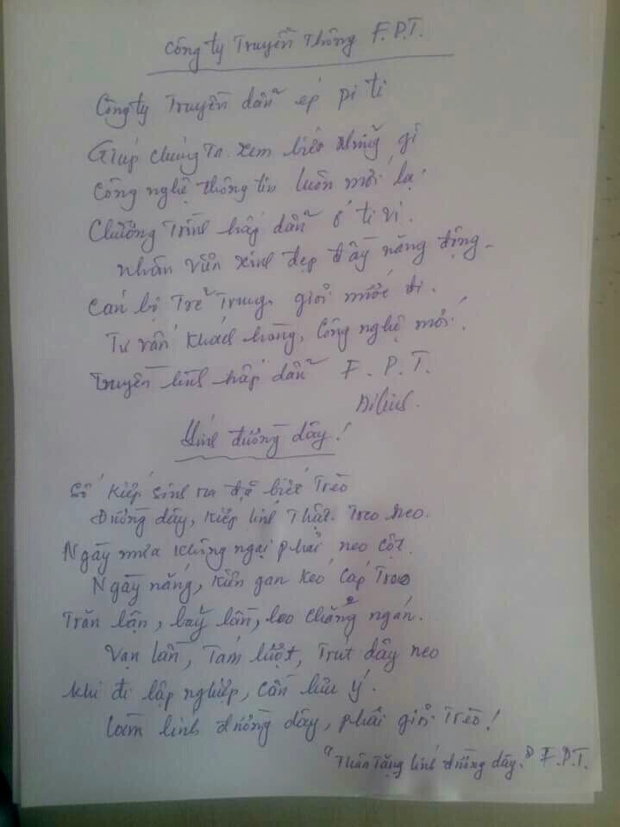 Công ty Truyền Thông F.P.T.
Công ty Truyền dẫn ép pi ti
Giúp chúng ta xem biết những gì
Công nghệ thông tin luôn mới lạ
Chương Trình hấp dẫn ở ti vi.
Nhân viên xinh đẹp đầy năng động
Cán bộ Trẻ Trung, giỏi mức đi.
Tư vấn khách hàng, công nghệ mới.
Truyền hình hấp dẫn F.P.T.
Lính đường dây!
Số kiếp sinh ra đã biết Trèo
Đường dây, kiếp lính Thật Treo neo.
Ngày mưa không ngại phải neo cột
Ngày nắng, kiên gan kéo cáp Treo
Trăn lần, bảy lần, leo chẳng ngán.
Vạn lần, Tám lượt, Trút dây neo
Khi đi lập nghiệp, cần lưu ý.
Làm lính đường dây, phải giỏi Trèo!
"Thân Tặng lính đường dây." F.P.T.